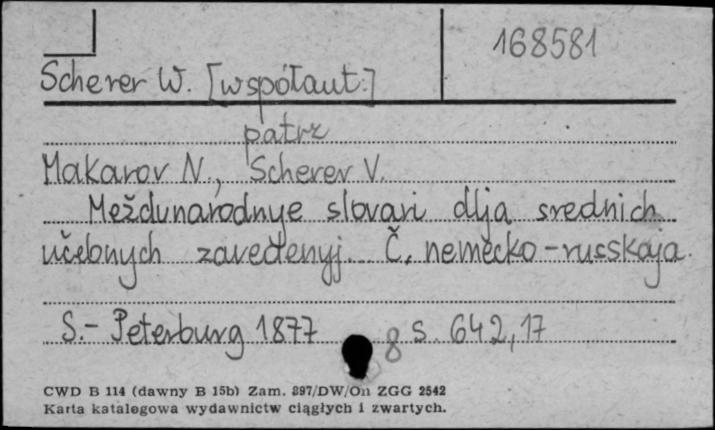 168581
Scherer W. [współaut.]
patrz
Makarov N., Scherer V.
Meždunarodnye slovari dlja srednich
učebnych zavedenyj. Č. nemecko-russkaja.
S.- Peterburg 1877 8 s. 642,17
CWD B 114 (dawny B 15b) Zam. 397/DW/On ZGG 2542
Karta katalogowa wydawnictw ciągłych i zwartych.